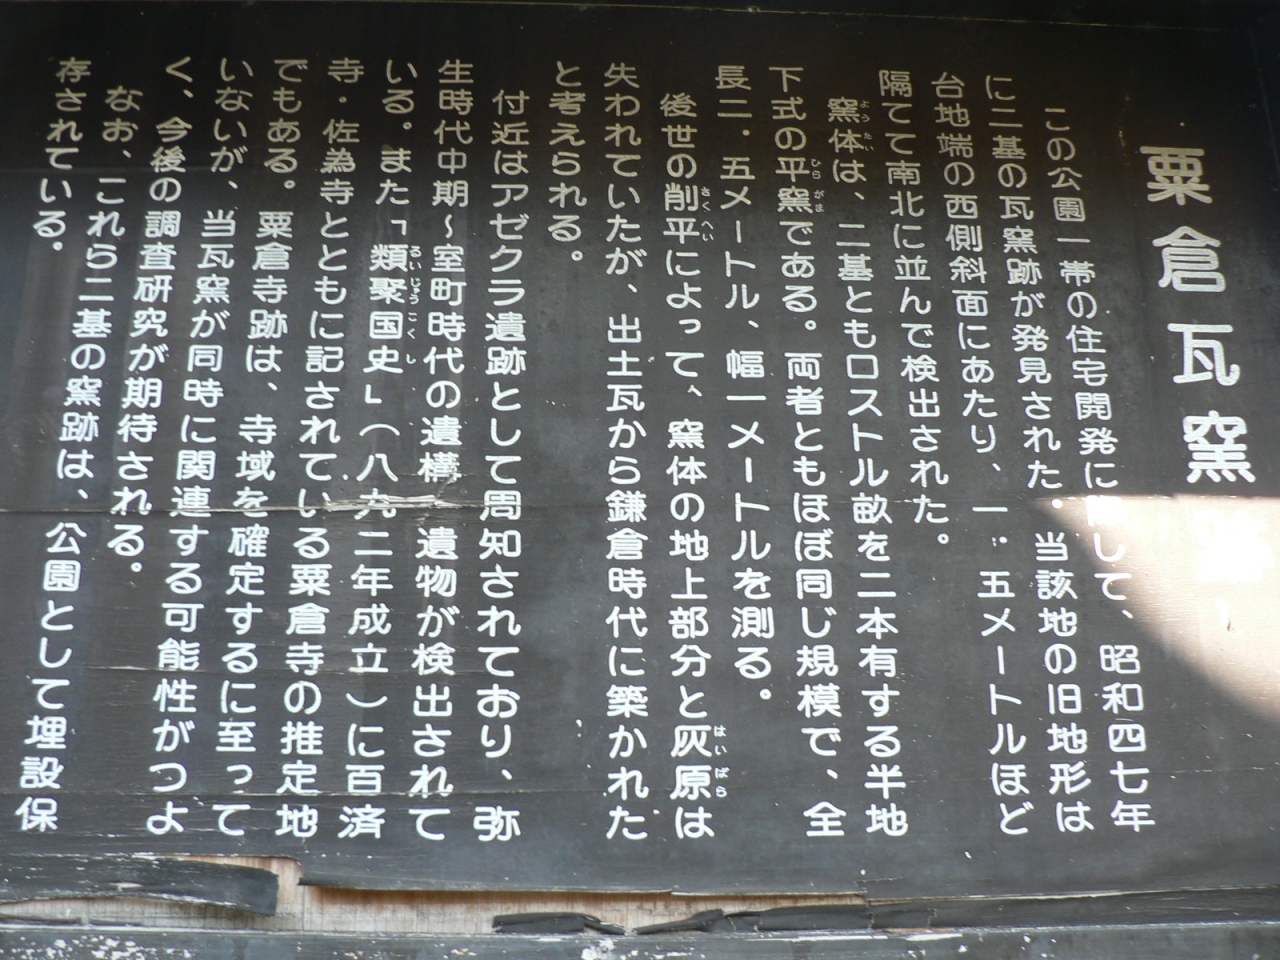 粟倉瓦窯
この公園一帯の住宅開発に際して、昭和四七年
に二基の瓦窯跡が発見された。当該地の旧地形は
台地端の西側斜面にあたり、一．五メートルほど
隔てて南北に並んで検出された。
窯体は、二基ともロストル畝を二本有する半地
ようたい
下式の平窯である。両者ともほぼ同じ規模で、全
ひらがま
長二．五メートル、幅一メートルを測る。
後世の削平によって、窯体の地上部分と灰原は
さくへい
はいばら
失われていたが、出土瓦から鎌倉時代に築かれた
と考えられる。
付近はアゼクラ遺跡として周知されており、弥
生時代中期～室町時代の遺構、遺物が検出されて
いる。また「類聚国史」（八九二年成立）に百済
るいじゅうこくし
寺・佐為寺とともに記されている粟倉寺の推定地
でもある。粟倉寺跡は、寺域を確定するに至って
いないが、当瓦窯が同時に関連する可能性がつよ
く、今後の調査研究が期待される。
なお、これら二基の窯跡は、公園として埋設保
存されている。